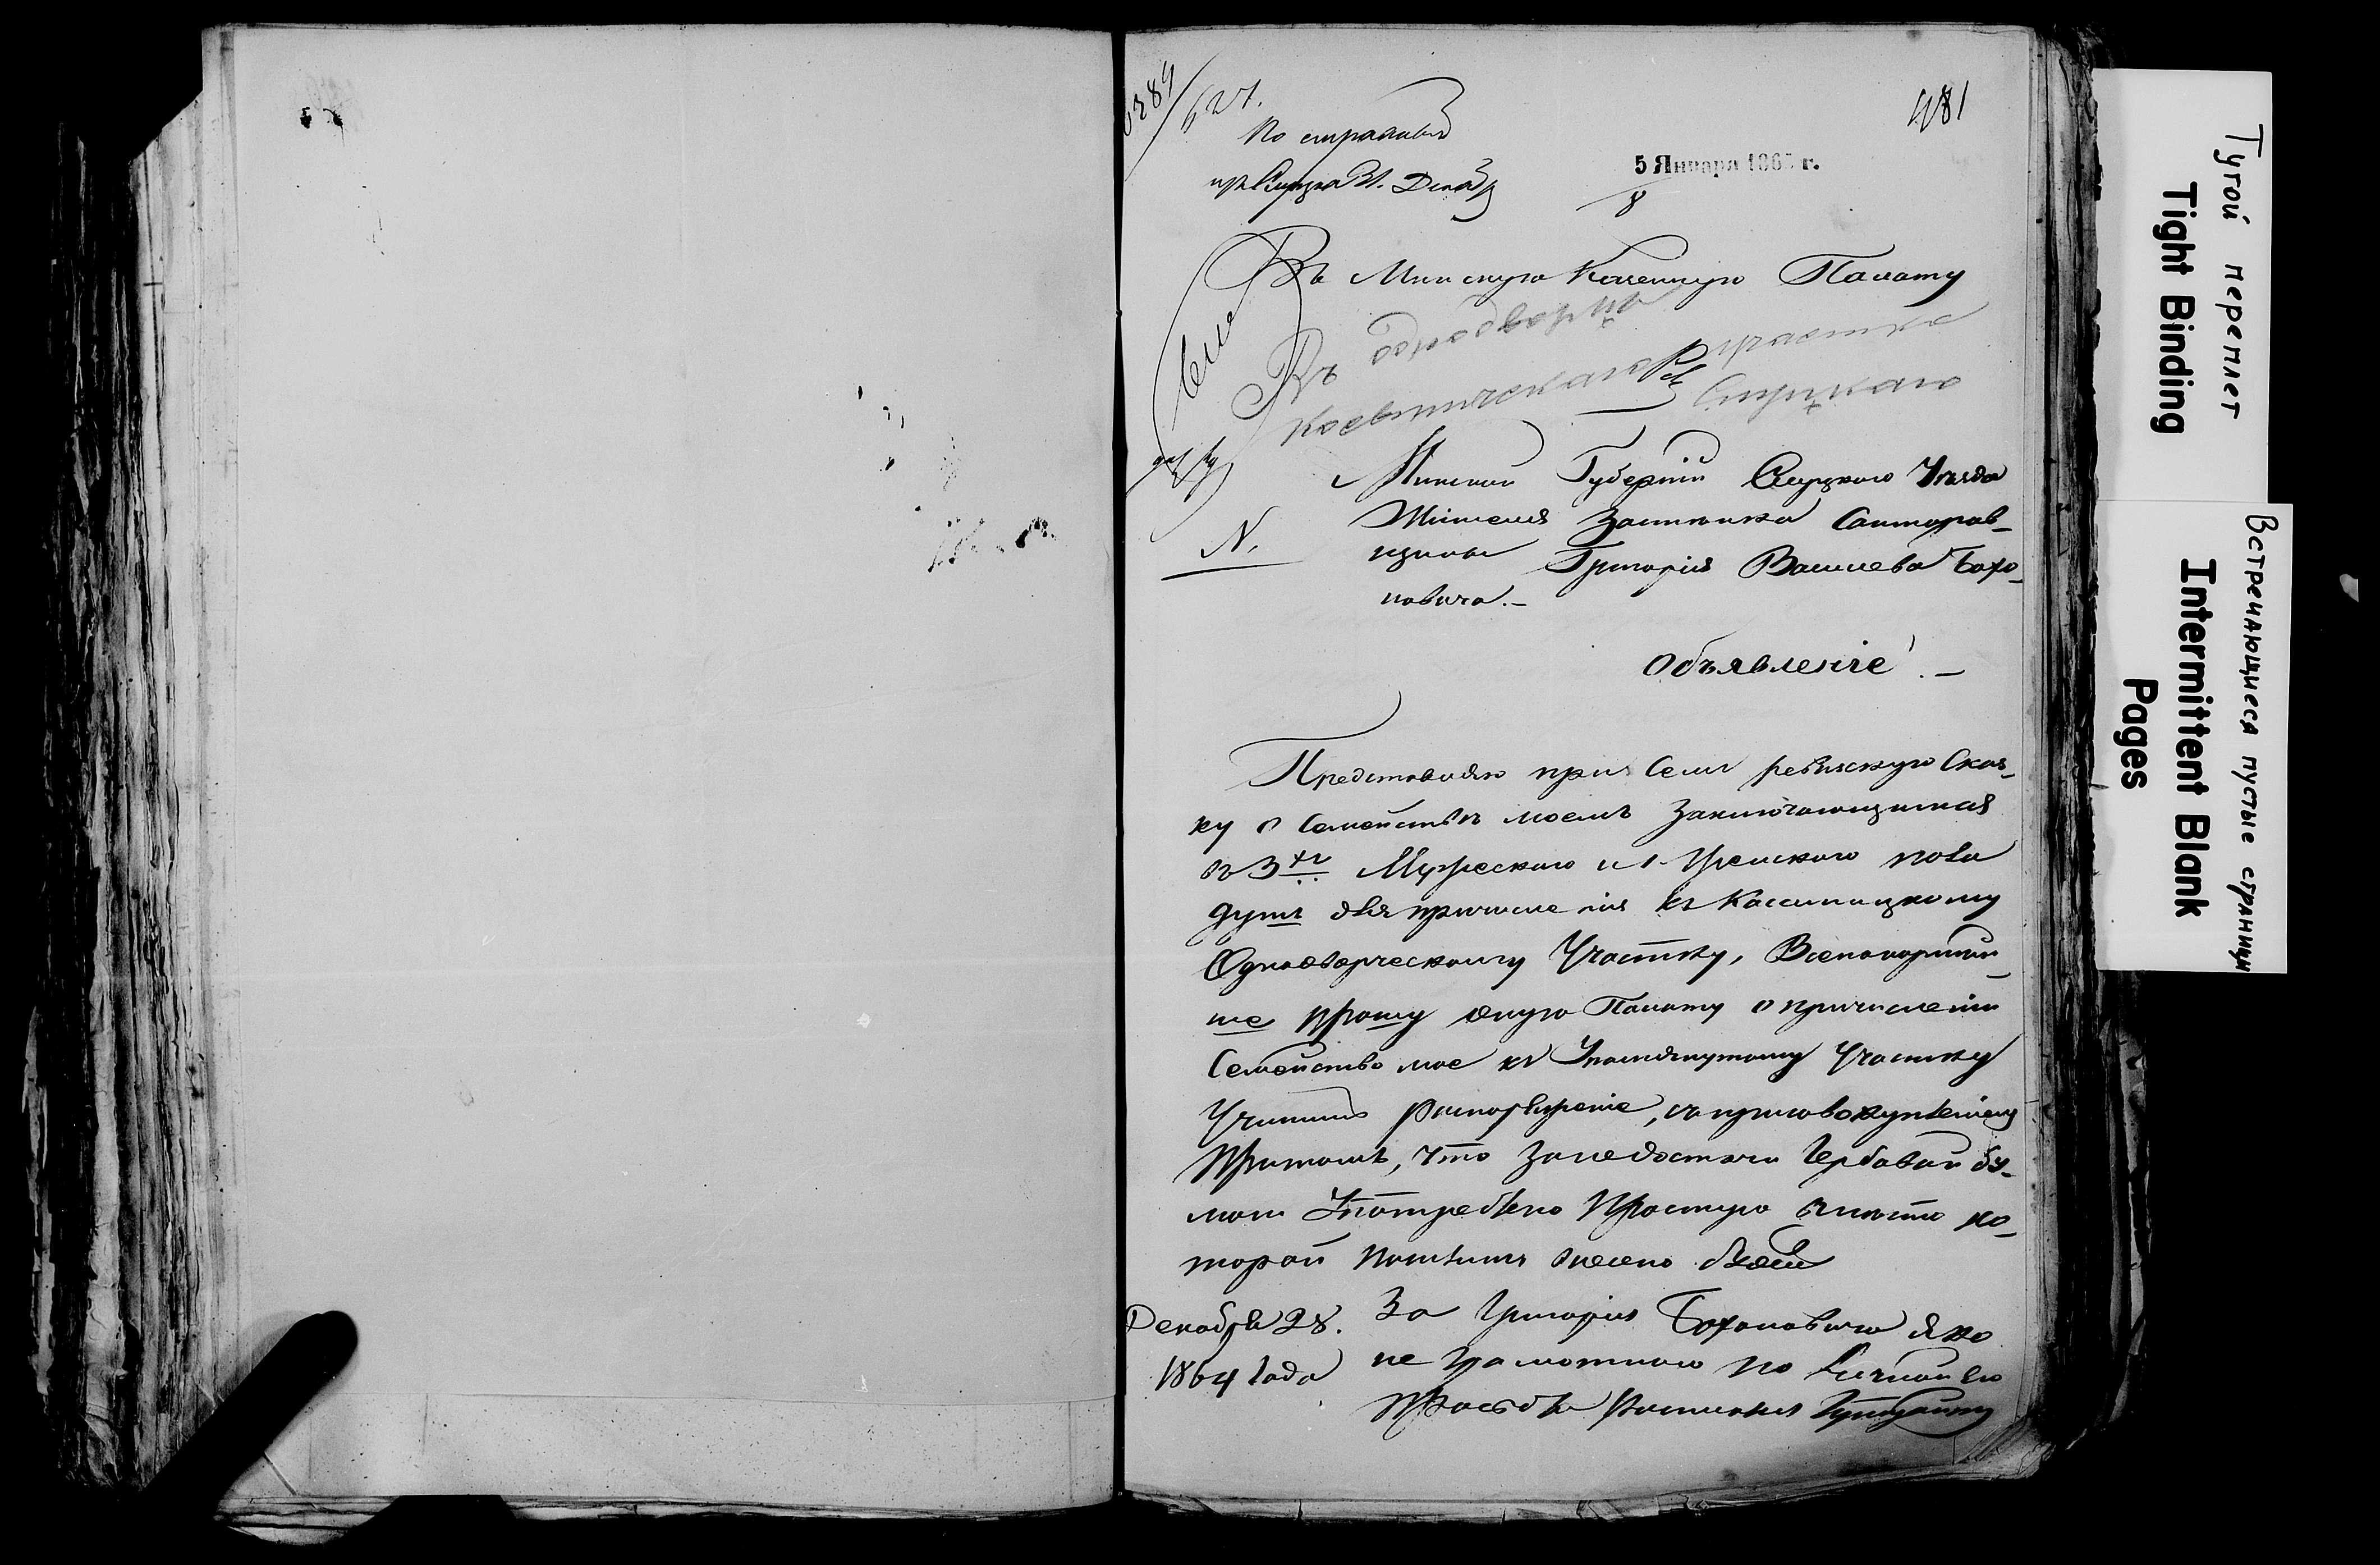 6384/627.
481
По справки
5 Января 1865 г.
8
Въ Минскую Казенную Палату
Въ однодворцы
участка
Слуцкаго
Минской Губерніи Слуцкого Уѣзда
Жителя Застѣнка Санторов-
N.
щины Григорія Васильева Бохо-
новича.-
Объявленіе.-
Представляю при Семъ ревизскую Сказ-
ку о Семействѣ моемъ Заключающимся
въ 3хъ Мужескаго и 1 Женского пола
душъ для причисленія къ
Однодворческому Участку, Всепокорнѣй-
ше прошу оную Палату о причисленіи
Семейство мое къ Упомянутому Участку
Учинить распоряженіе, съ присовокупленіемъ
Притомъ, что За недостачи Гербовой бу-
маги Употреблено Простую вмѣсто ко-
торой
Декабря 28.
1864 Года
За Григорія Бохоновича яко
не грамотного по личной Его
Прозьбѣ росписался
Тугой переплет
Tight Binding
Встречающиеся пустые страницы
Intermittent Blank
Pages